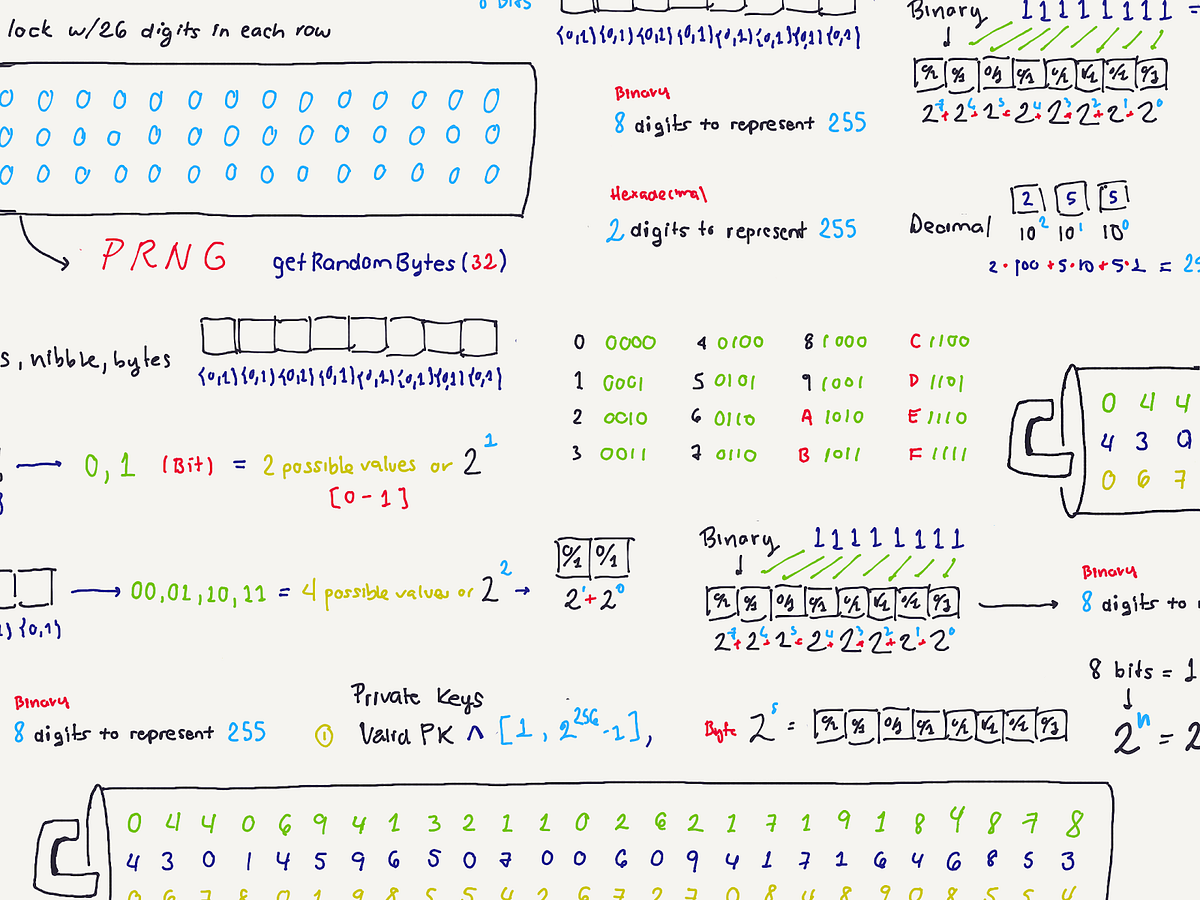 lock w/26 digits in each row
8 bits
{0,1}{0,1}{0,1}{0,1}{0,1}{0,1}{0,1}{0,1}
Binary 11111111 =
↓
0/1 0/1 0/1 0/1 0/1 0/1 0/1 0/1
2^7+2^6+2^5+2^4+2^3+2^2+2^1+2^0
0 0 0 0 0 0 0 0 0 0 0 0 0 0
0 0 0 0 0 0 0 0 0 0 0 0 0 0
0 0 0 0 0 0 0 0 0 0 0 0 0 0
PRNG getRandomBytes(32)
Binary
8 digits to represent 255
Hexadecimal
2 digits to represent 255
Decimal 2 5 5
10^2 10^1 10^0
2·100+5·10+5·1 = 25
s, nibble, bytes
{0,1}{0,1}{0,1}{0,1}{0,1}{0,1}{0,1}{0,1}
0 0000 4 0100 8 1000 C 1100
1 0001 5 0101 9 1001 D 1101
2 0010 6 0110 A 1010 E 1110
3 0011 7 0110 B 1011 F 1111
0 4 4
4 3 0
0 6 7
→ 0,1 (Bit) = 2 possible values or 2^1
[0-1]
→ 00,01,10,11 = 4 possible values or 2^2 →
{0,1}
0/1 0/1
2^1+2^0
Binary 11111111
↓
0/1 0/1 0/1 0/1 0/1 0/1 0/1 0/1
2^7+2^6+2^5+2^4+2^3+2^2+2^1+2^0
Binary
8 digits to
8 bits = 1
↓
2^n = 2
Binary
8 digits to represent 255
Private Keys
① Valid PK ^ [1, 2^256-1],
Byte 2^8 = 0/1 0/1 0/1 0/1 0/1 0/1 0/1 0/1
0 4 4 0 6 9 4 1 3 2 1 1 0 2 6 2 1 7 1 9 1 8 4 8 7 8
4 3 0 1 4 5 9 6 5 0 7 0 0 6 0 9 4 1 7 1 6 4 6 8 5 3
0 6 7 8 0 1 9 8 5 5 4 2 6 7 2 7 0 8 4 8 9 0 8 5 5 4